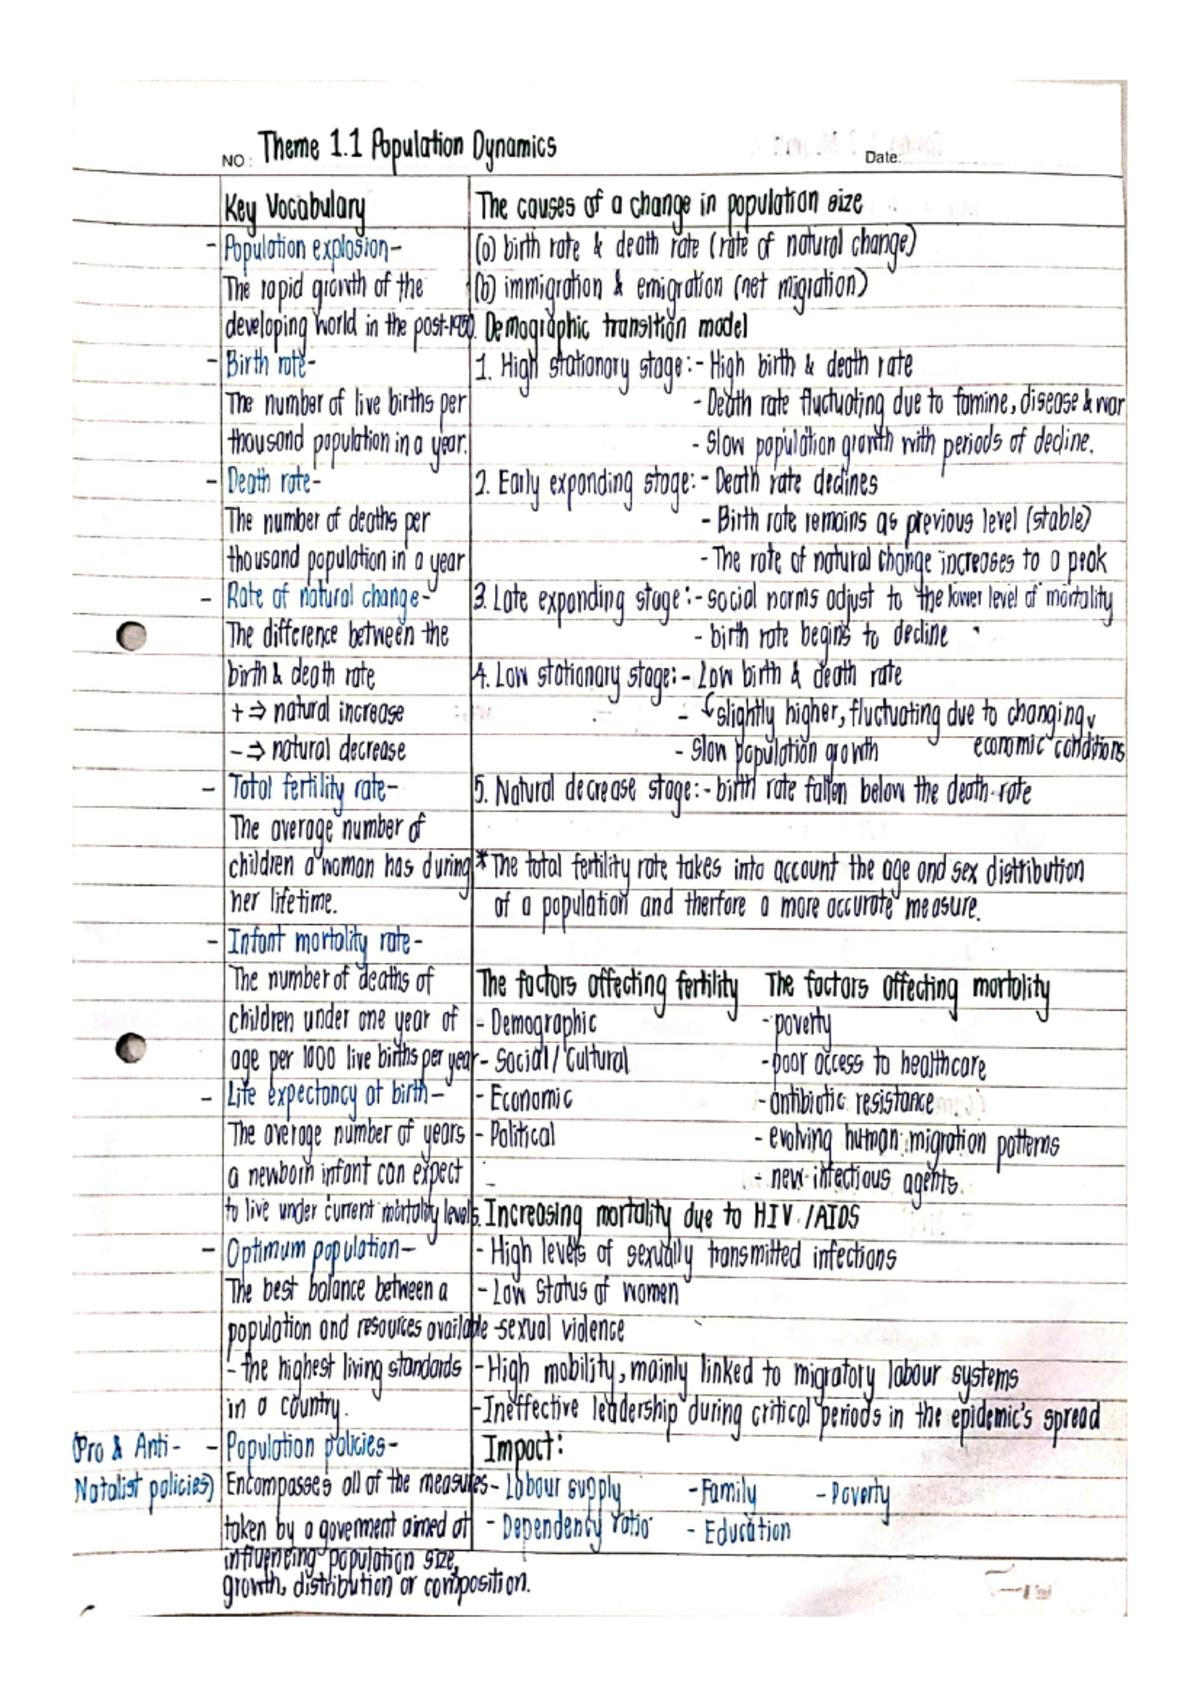 NO: Theme 1.1 Population Dynamics
Date:
Key Vocabulary
- Population explosion-
The rapid growth of the
developing world in the post-1950.
- Birth rate-
The number of live births per
thousand population in a year.
- Death rate-
The number of deaths per
thousand population in a year
- Rate of natural change-
The difference between the
birth & death rate
+ ⇒ natural increase
- ⇒ natural decrease
- Total fertility rate-
The average number of
children a woman has during
her lifetime.
- Infant mortality rate-
The number of deaths of
children under one year of
age per 1000 live births per year
- Life expectancy at birth-
The average number of years
a newborn infant can expect
to live under current mortality levels.
- Optimum population-
The best balance between a
population and resources available
- the highest living standards
in a country.
(Pro & Anti- - Population policies-
Natalist policies) Encompasses all of the measures
taken by a goverment aimed at
influencing population size,
growth, distribution or composition.
The causes of a change in population size
(a) birth rate & death rate (rate of natural change)
(b) immigration & emigration (net migration)
Demographic transition model
1. High stationary stage:- High birth & death rate
- Death rate fluctuating due to famine, disease & war
- Slow population growth with periods of decline.
2. Early expanding stage:- Death rate declines
- Birth rate remains as previous level (stable)
- The rate of natural change increases to a peak
3. Late expanding stage:- social norms adjust to the lower level of mortality
- birth rate begins to decline
4. Low stationary stage:- Low birth & death rate
- ↳ slightly higher, fluctuating due to changing
economic conditions
- Slow population growth
5. Natural decrease stage:- birth rate fallen below the death rate
* The total fertility rate takes into account the age and sex distribution
of a population and therfore a more accurate measure.
The factors affecting fertility
- Demographic
- Social / Cultural
- Economic
- Political
The factors affecting mortality
- poverty
- poor access to healthcare
- antibiotic resistance
- evolving human migration patterns
- new infectious agents.
Increasing mortality due to HIV /AIDS
- High levels of sexually transmitted infections
- Low Status of women
- sexual violence
- High mobility, mainly linked to migratory labour systems
- Ineffective leadership during critical periods in the epidemic's spread
Impact:
- Labour supply - Family - Poverty
- Dependency ratio - Education